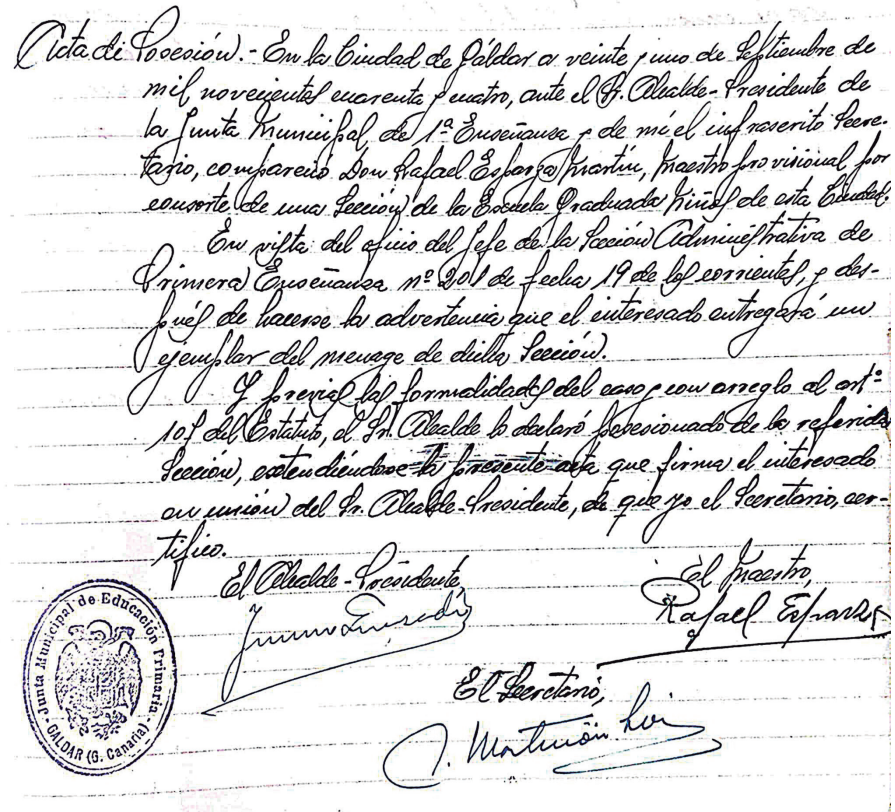 Acta de Posesión.- En la Ciudad de Gáldar a veinte y uno de Septiembre de
mil novecientos cuarenta y cuatro, ante el Sr. Alcalde-Presidente de
la Junta Municipal, de 1ª Enseñanza y de mí el infrascrito Secre-
tario, compareció Don Rafael Esparza Martín, Maestro provisional por
consorte de una Sección de la Escuela Graduada Niños de esta Ciudad.
En vista del oficio del Jefe de la Sección Administrativa de
Primera Enseñanza nº 201 de fecha 19 de los corrientes, y des-
pués de hacerse la advertencia que el interesado entregará un
ejemplar del menage de dicha Sección.
Y previas las formalidades del caso y con arreglo al artº
del Estatuto, el Sr. Alcalde lo declaró posesionado de la referida
Sección, extendiéndose la presente acta que firma el interesado
en unión del Sr. Alcalde-Presidente, de que yo el Secretario, cer-
tifico.
El Alcalde-Presidente,
El Maestro,
Rafael Esparza
El Secretario,
Junta Municipal de Educación Primaria
GALDAR (G. Canaria)